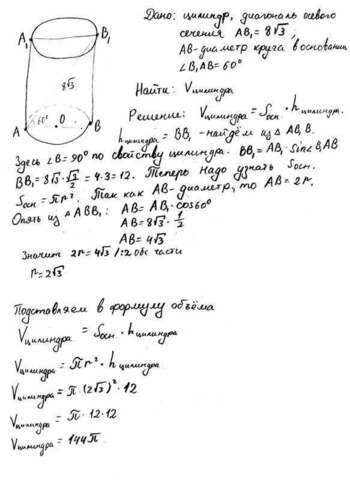 Дано: цилиндр, диагональ осевого
сечения AB₁ = 8√3,
AB-диаметр круга в основании
∠B₁AB = 60°
Найти: Vцилиндра
Решение: Vцилиндра = Sосн · hцилиндра.
hцилиндра = BB₁ - найдём из △ AB₁B.
A₁
B₁
8√3
60°
A
O
B
Здесь ∠B = 90° по свойству цилиндра. BB₁ = AB₁ · Sin∠B₁AB
BB₁ = 8√3 · √3/2 = 4·3 = 12. Теперь надо узнать Sосн.
Sосн = πr². Так как AB-диаметр, то AB = 2r.
Опять из △ABB₁: AB = AB₁ · cos60°
AB = 8√3 · 1/2
AB = 4√3
Значит 2r = 4√3 /:2 обе части
r = 2√3
Подставляем в формулу объёма
Vцилиндра = Sосн · hцилиндра
Vцилиндра = πr² · hцилиндра
Vцилиндра = π · (2√3)² · 12
Vцилиндра = π · 12 · 12
Vцилиндра = 144π